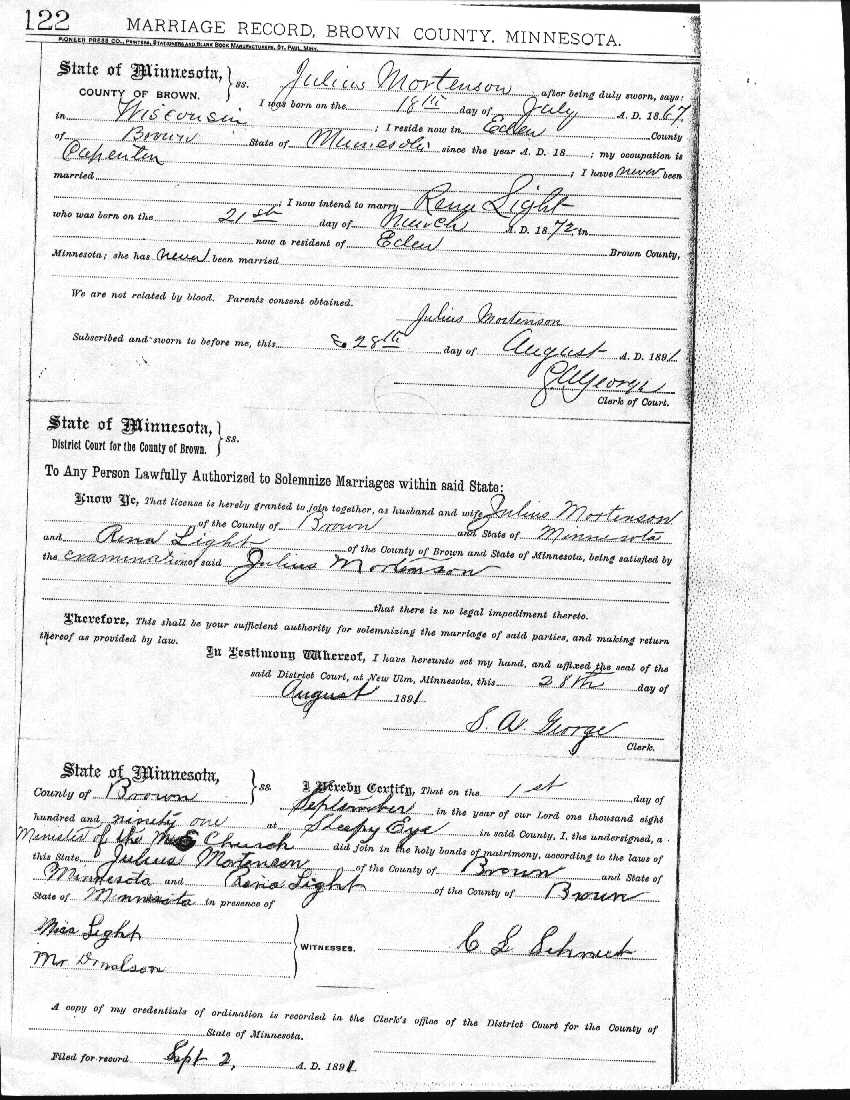 122 MARRIAGE RECORD, BROWN COUNTY, MINNESOTA.
PIONEER PRESS CO., PRINTERS, STATIONERS AND BLANK BOOK MANUFACTURERS, ST. PAUL, MINN.
State of Minnesota, } ss. Julius Mortenson after being duly sworn, says:
COUNTY OF BROWN. I was born on the 18th day of July A. D. 1867
in Wisconsin ; I reside now in Eden County
of Brown State of Minnesota since the year A. D. 18 ; my occupation is
Carpenter ; I have never been
married
; I now intend to marry Rena Light
who was born on the 21st day of March A. D. 1872 in
now a resident of Eden Brown County,
Minnesota; she has never been married
We are not related by blood. Parents consent obtained.
Julius Mortenson
Subscribed and sworn to before me, this 28th day of August A. D. 1891
S A George
Clerk of Court.
State of Minnesota, } ss.
District Court for the County of Brown.
To Any Person Lawfully Authorized to Solemnize Marriages within said State:
Know Ye, That license is hereby granted to join together, as husband and wife Julius Mortenson
of the County of Brown and State of Minnesota
and Rena Light of the County of Brown and State of Minnesota, being satisfied by
the examination of said Julius Mortenson
that there is no legal impediment thereto.
Therefore, This shall be your sufficient authority for solemnizing the marriage of said parties, and making return
thereof as provided by law.
In Testimony Whereof, I have hereunto set my hand, and affixed the seal of the
said District Court, at New Ulm, Minnesota, this 28th day of
August 1891
S. A. George
Clerk.
State of Minnesota, } ss. I Hereby Certify, That on the 1st day of
County of Brown September in the year of our Lord one thousand eight
hundred and ninety one at Sleepy Eye in said County, I, the undersigned, a
Minister of the M E Church did join in the holy bonds of matrimony, according to the laws of
this State Julius Mortenson of the County of Brown and State of
Minnesota and Rena Light of the County of Brown
State of Minnesota in presence of
Miss Light } WITNESSES. C L
Mr Donalson
A copy of my credentials of ordination is recorded in the Clerk's office of the District Court for the County of
State of Minnesota.
Filed for record Sept 2, A. D. 1891